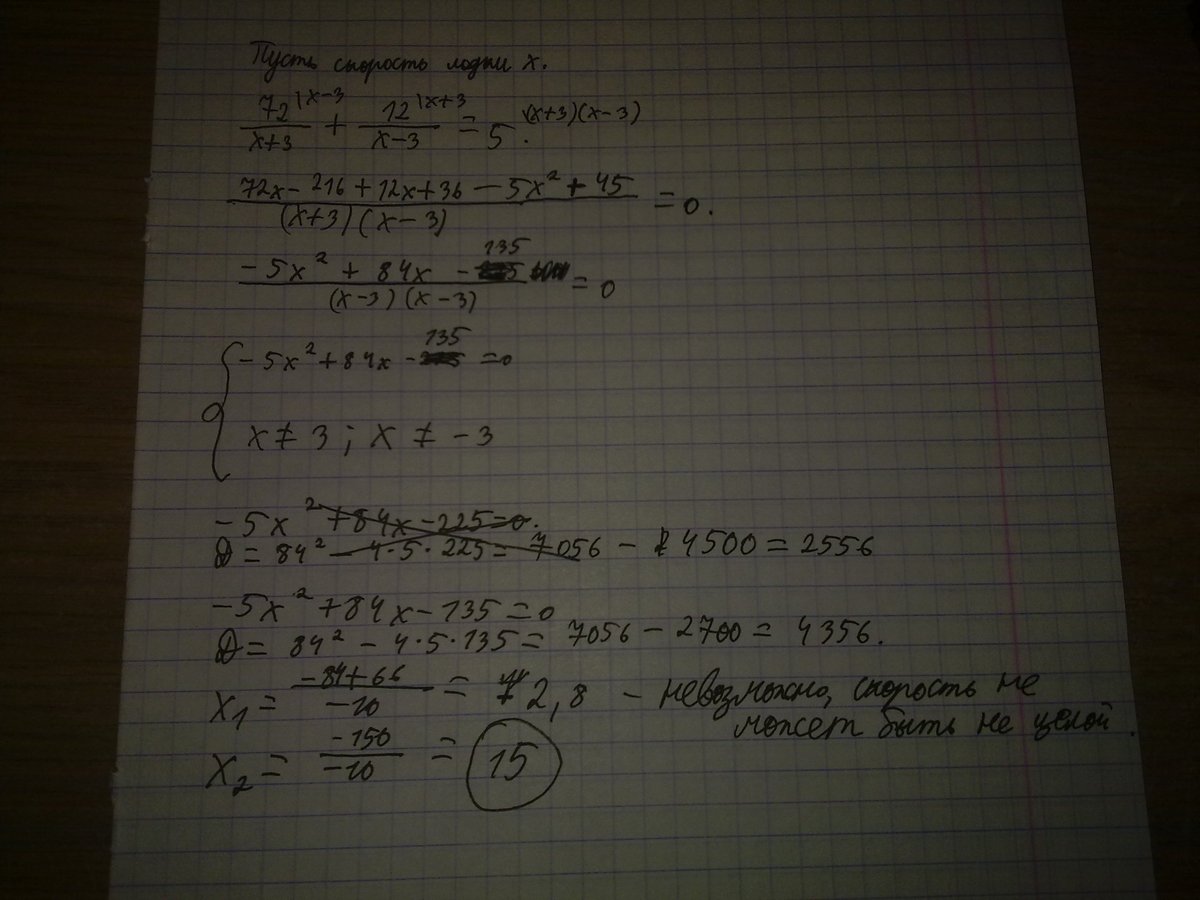 Пусть скорость лодки х.
72^{|x-3}/(x+3) + 12^{|x+3}/(x-3) = 5^{(x+3)(x-3)}.
(72x - 216 + 12x + 36 - 5x² + 45)/((x+3)(x-3)) = 0.
(-5x² + 84x - 135)/((x-3)(x-3)) = 0
{ -5x² + 84x - 135 = 0
x ≠ 3 ; x ≠ -3
-5x² + 84x - 225 = 0.
D = 84² - 4·5·225 = 7056 - 4500 = 2556
-5x² + 84x - 135 = 0
D = 84² - 4·5·135 = 7056 - 2700 = 4356.
x₁ = (-84+66)/(-10) = 2,8 - невозможно, скорость не
может быть не целой.
x₂ = (-150)/(-10) = 15